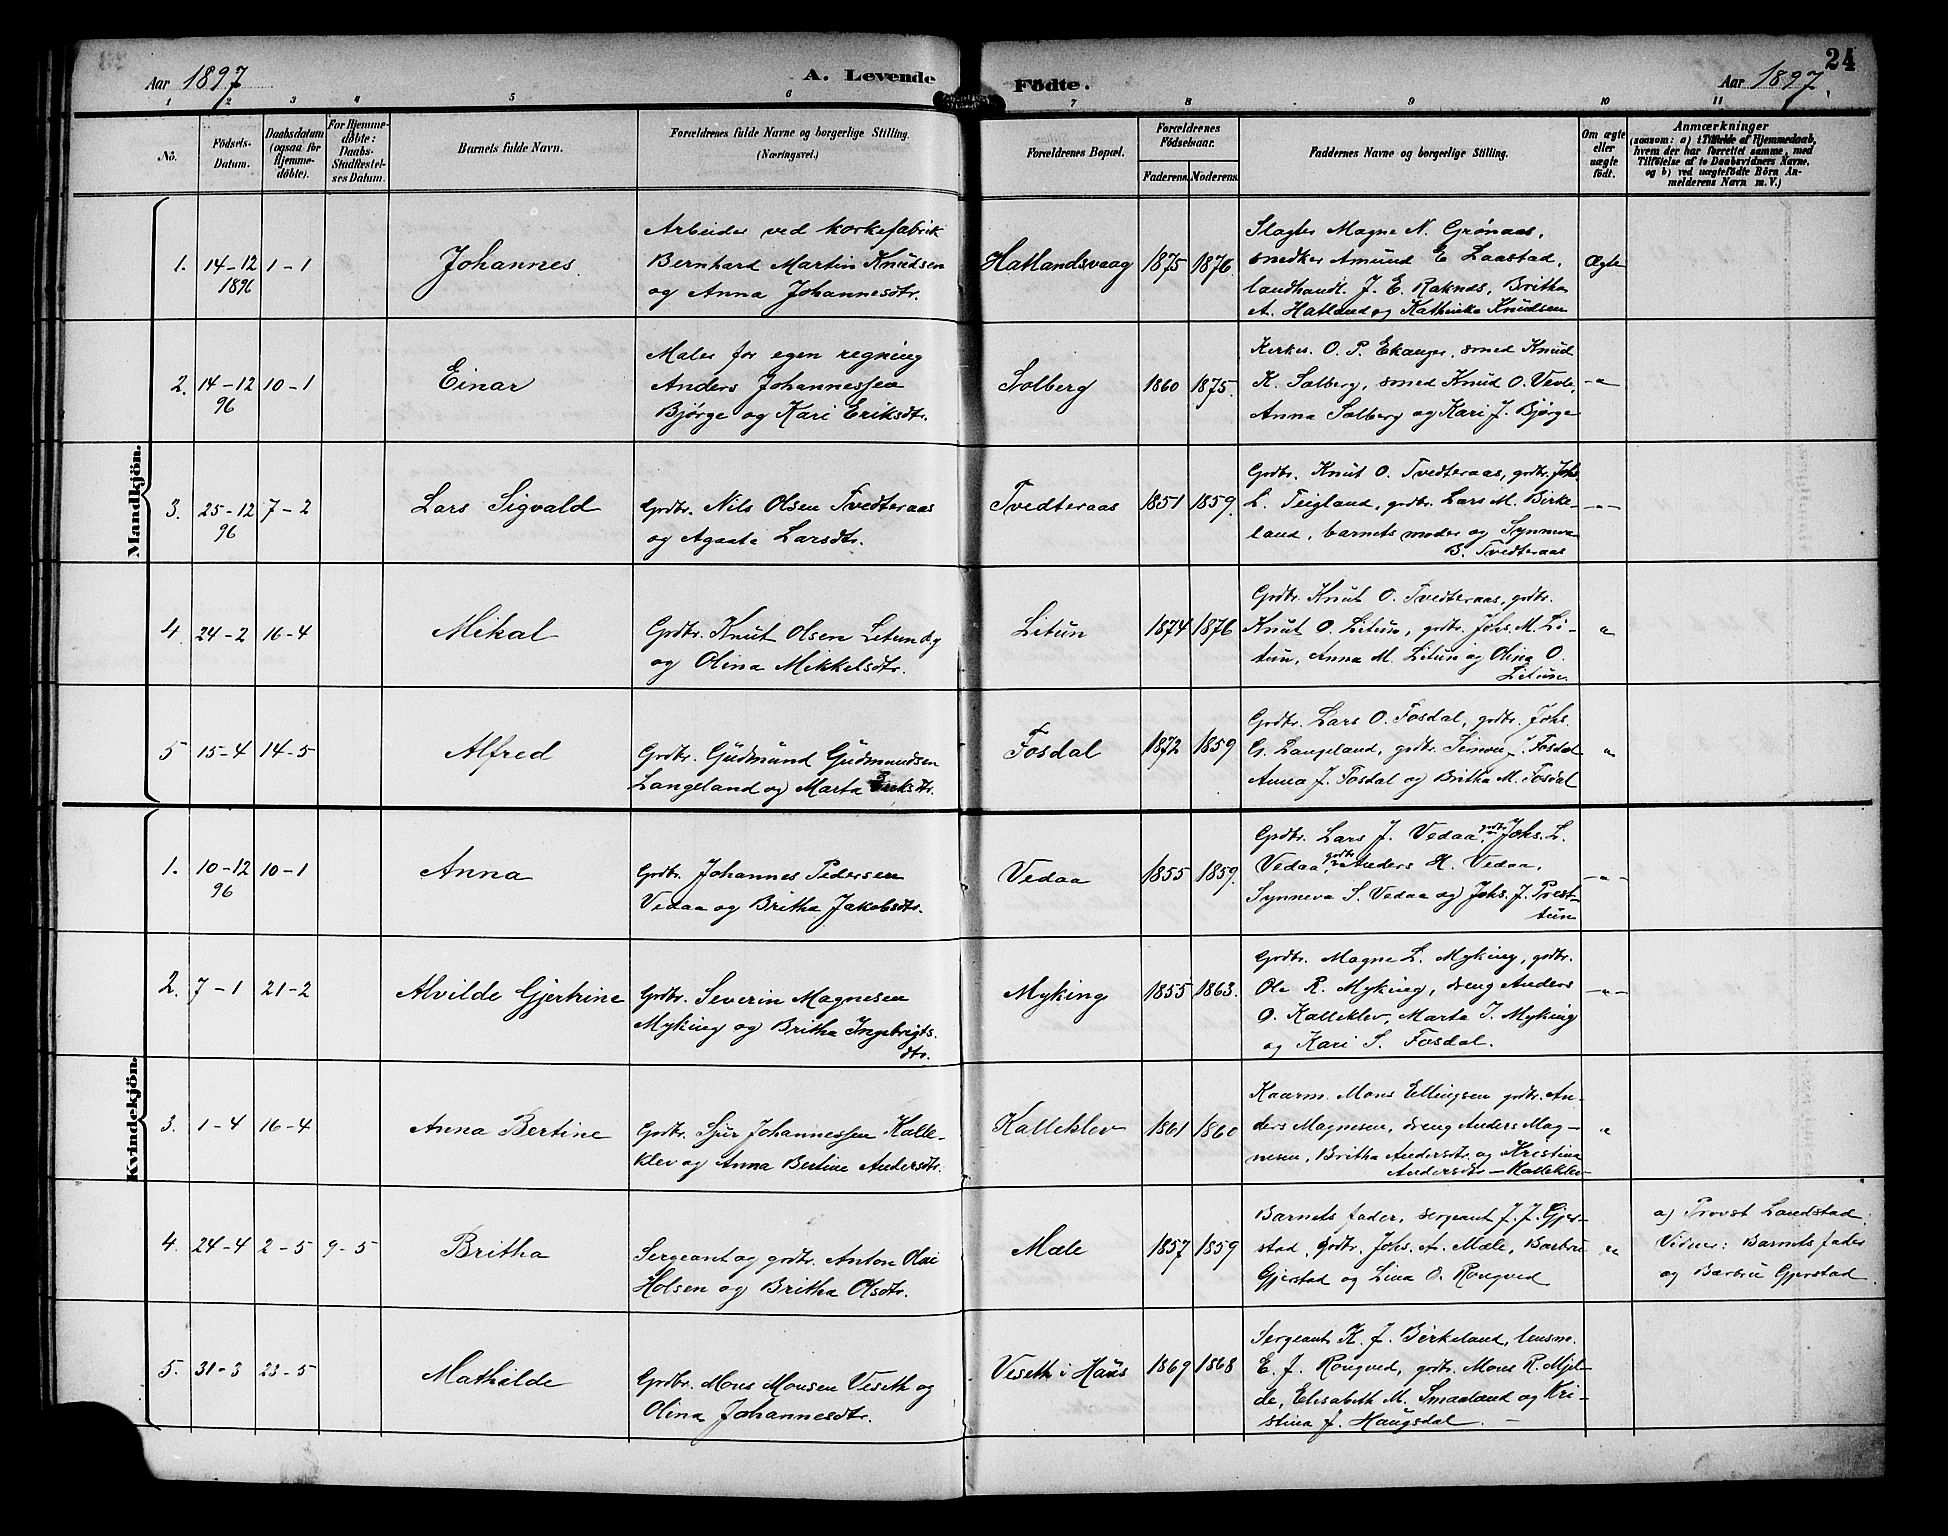 24
Aar 1897
A. Levende
Födte.
Aar 1897.
1 2 3 4 5 6 7 8 9 10 11
No.
Födsels-
Datum.
Daabsdatum
(ogsaa for
Hjemme-
döbte).
For Hjemme-
döbte:
Daabs-
Stadfæstel-
ses Datum.
Barnets fulde Navn.
Forældrenes fulde Navne og borgerlige Stilling.
(Næringsvei.)
Forældrenes Bopæl.
Forældrenes
Födselsaar.
Faderens. Moderens.
Faddernes Navne og borgerlige Stilling.
Om ægte
eller
uægte
födt.
Anmærkninger
(saasom: a) i Tilfælde af Hjemmedaab,
hvem der har forrettet samme, med
Tilföielse af to Daabsvidners Navne,
og b) ved uægtefödte Börn An-
melderens Navn m. V.)
Mandkjön.
1. 14-12 1896
1-1
Johannes.
Arbeider ved korkefabrik
Bernhard Martin Knudsen
og Anna Johannesdtr.
Hatlandsvaag
1875 1876.
Slagter Magne N. Grønaas,
snedker Amund E. Laastad,
landhandl. J. E. Raknes, Britha
A. Hatland og Kathinka Knudsen
Ægte
2. 14-12 96
10-1
Einar
Maler for egen regning
Anders Johannessen
Bjørge og Kari Eriksdtr.
Solberg
1860 1875.
Kirkes. O. P. Ekanger, smed Knud
K. Solberg, smed Knud O. Vevle,
Anna Solberg og Kari J. Bjørge
-"
3. 25-12 96
7-2
Lars Sigvald
Grdbr. Nils Olsen Tvedteraas
og Agaata Larsdtr.
Tvedteraas
1851 1859.
Grdbr. Knut O. Tvedteraas, grdbr. Johs.
L. Teigland, grdbr. Lars M. Birke-
land, barnets moder og Synneva
B. Tvedteraas
-"-
4. 24-2
16-4
Mikal
Grdbr. Knut Olsen Litun
og Olina Mikkelsdtr.
Litun
1874 1876
Grdbr. Knut O. Tvedteraas, grdbr.
Knut O. Litun, grdbr. Johs. M. Li-
tun, Anna M. Litun og Olina O.
Litun.
"
5 15-4
14-5
Alfred
Grdbr. Gudmund Gudmundsen
Langeland og Marta Eriksdtr.
Fosdal
1872 1859
Grdbr. Lars O. Fosdal, grdbr. Johs.
G. Langeland, grdbr. Simon J. Fosdal
Anna J. Fosdal og Britha M. Fosdal
"
Kvindekjön.
1. 10-12 96
10-1
Anna
Grdbr. Johannes Pedersen
Vedaa og Britha Jakobsdtr.
Vedaa
1855 1859.
Grdbr. Lars J. Vedaa, grdbr. Johs. L.
Vedaa, grdbr. Anders H. Vedaa,
Synneva S. Vedaa og Johs. J. Prest-
tun
-"-
2. 7-1
21-2
Alvilde Gjertrine
Grdbr. Severin Magnesen
Myking og Britha Ingebrigts-
dtr.
Myking
1855 1863.
Grdbr. Magne L. Myking, grdbr.
Ole R. Myking, dreng Anders
O. Kalleklev, Marta I. Myking
og Kari S. Fosdal.
-"-
3. 1-4
16-4
Anna Bertine
Grdbr. Sjur Johannessen Kalle-
klev og Anna Bertine Andersdtr.
Kalleklev
1861 1860
Kaarm. Mons Ellingsen grdbr. An-
ders Magnesen, dreng Anders Mag-
nesen, Britha Andersdtr. og Kristina
Andersdtr - Kalleklev
"
4. 24-4
2-5
9-5
Britha
Sergeant og grdbr. Anton Olai
Holsen og Britha Olsdtr.
Mæle
1857 1859
Barnets fader, sergeant J. J. Gjer-
stad, grdbr. Johs. A. Mæle, Barbru
Gjerstad og Lina O. Rongved
"
a) Provst Landstad.
Vidner: Barnets fader
og Barbru Gjerstad.
5. 31-3
23-5
Mathilde
Grdbr. Mons Monsen Veseth og
Olina Johannesdtr.
Veseth i Haus
1869 1868
Sergeant K. J. Birkeland, lensm.
E. J. Rongved, grdbr. Mons R. Mjel-
de, Elisabeth M. Smaaland og Kri-
stina J. Haugsdal. -